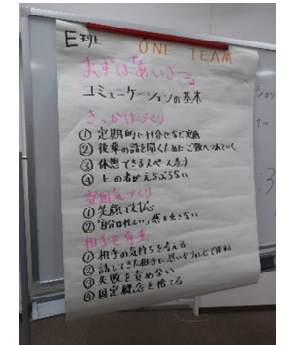 Eチーム
ONE TEAM
まずは「あいさつ」
コミュニケーションの基本
きっかけづくり
① 定期的に
② 後輩の話を聞くために ご飯へつれていく
③ 休憩できるスペース
④ 上の者がえらぶらない
雰囲気づくり
① 笑顔で対応
② "自分は忙しい"感を出さない
相手を尊重
① 相手の気持ちを考える
② 話してきた相手に
③ 失敗を責めない
④ 固定概念を捨てる